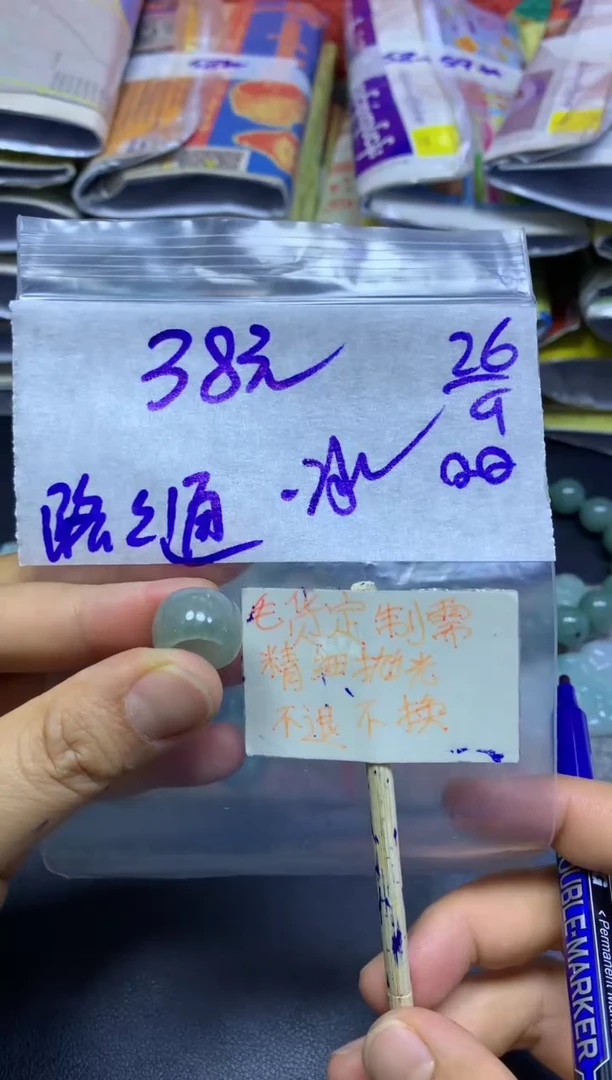 38元
26/9
路路通
冰
毛货定制需
精细抛光
不退不换
DOUBLE-MARKER
Permanent